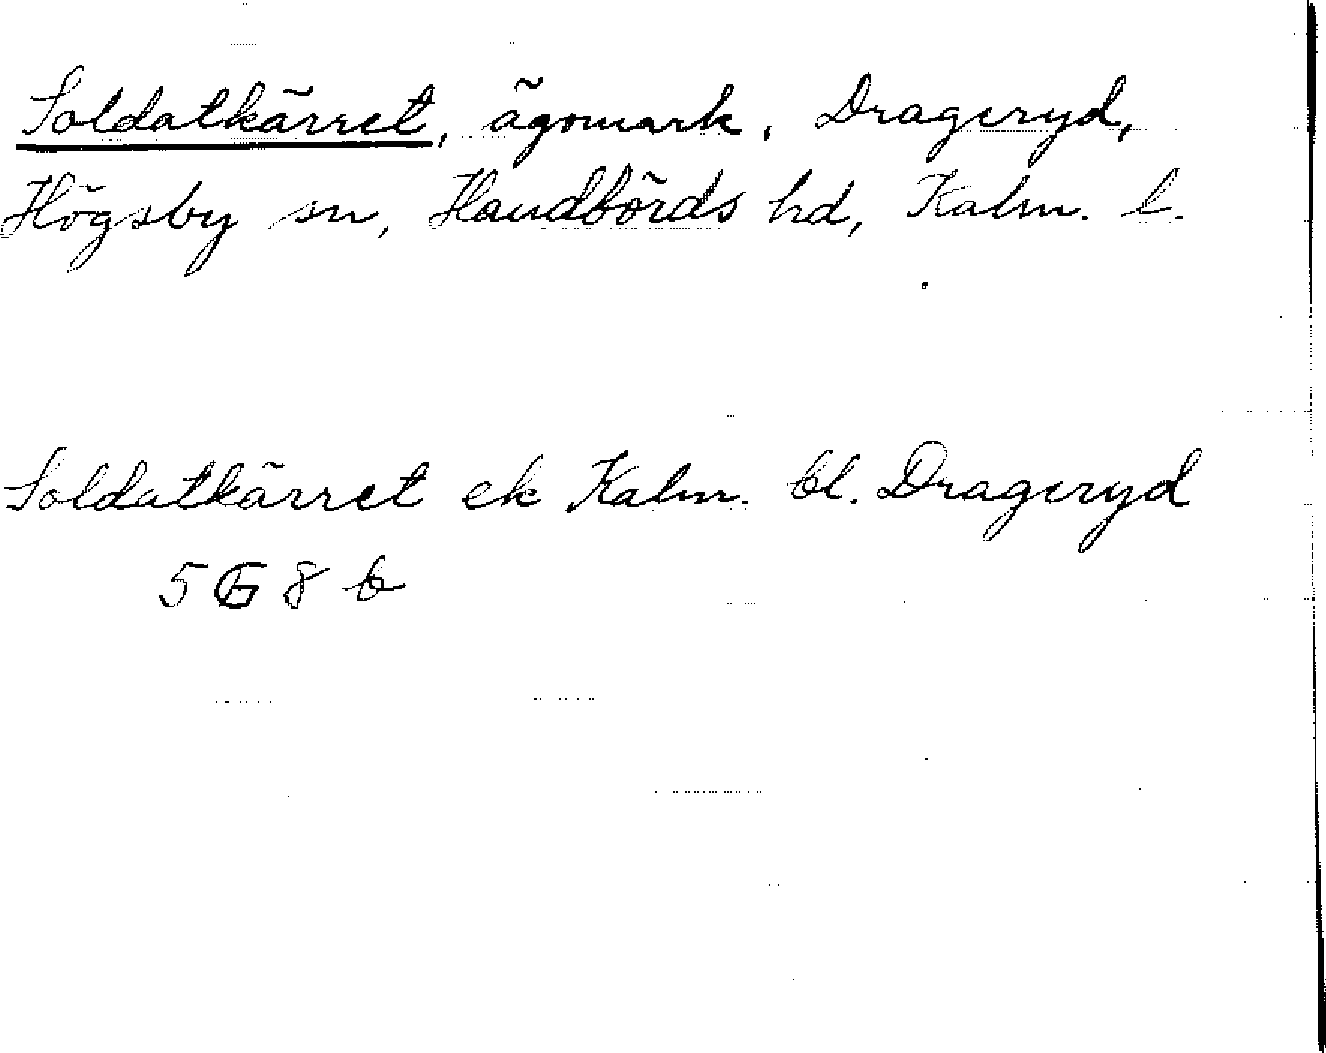 Soldatkärret, ägomark, Drageryd,
Högsby sn, Handbörds hd, Kalm. l.
Soldatkärret ek Kalm. bl. Drageryd
5G 8 b